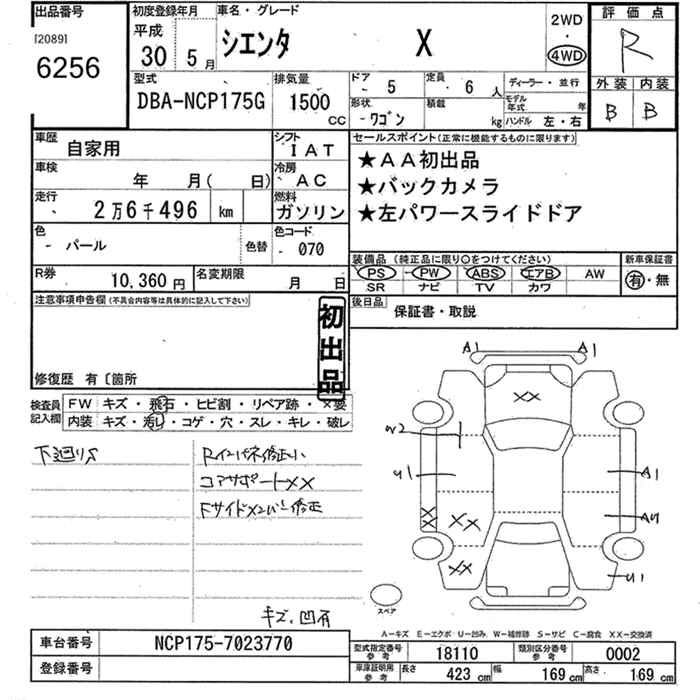 出品番号
[2089]
6256
初度登録年月
平成
30 5月
車名・グレード
シエンタ X
2WD
・
4WD
評価点
R
外装 内装
B B
型式
DBA-NCP175G
排気量
1500 CC
ドア 5
定員 6 人
ディーラー・並行
形状 ワゴン
積載 kg
モデル年式 年
ハンドル 左・右
車歴 自家用
シフト IAT
車検 年 月( 日)
冷房 AC
走行 2万6千496 km
燃料 ガソリン
色 パール 色替
色コード 070
R券 10,360円
名変期限 月 日
セールスポイント(正常に機能するものに限ります)
★AA初出品
★バックカメラ
★左パワースライドドア
装備品(純正品に限り○をつけてください)
新車保証書
PS PW ABS エアB AW
SR ナビ TV カワ
有・無
後日品 保証書・取説
注意事項申告欄(不具合内容等は具体的に記入して下さい)
初出品
修復歴 有〔箇所
検査員記入欄
FW キズ・飛石・ヒビ割・リペア跡・×要
内装 キズ・汚レ・コゲ・穴・スレ・キレ・破レ
下廻りS
Rインパネ修正い
コアサポートXX
キズ、凹有
A1 A1
XX
W2
U1
A1
XX
XX
XX
U1
スペア
A-キズ E-エクボ U-凹み W-補修跡 S-サビ C-腐食 XX-交換済
車台番号 NCP175-7023770
登録番号
型式指定番号 参考 18110
類別区分番号 参考 0002
車庫証明用 参考 長さ 423 cm 幅 169 cm 高さ 169 cm